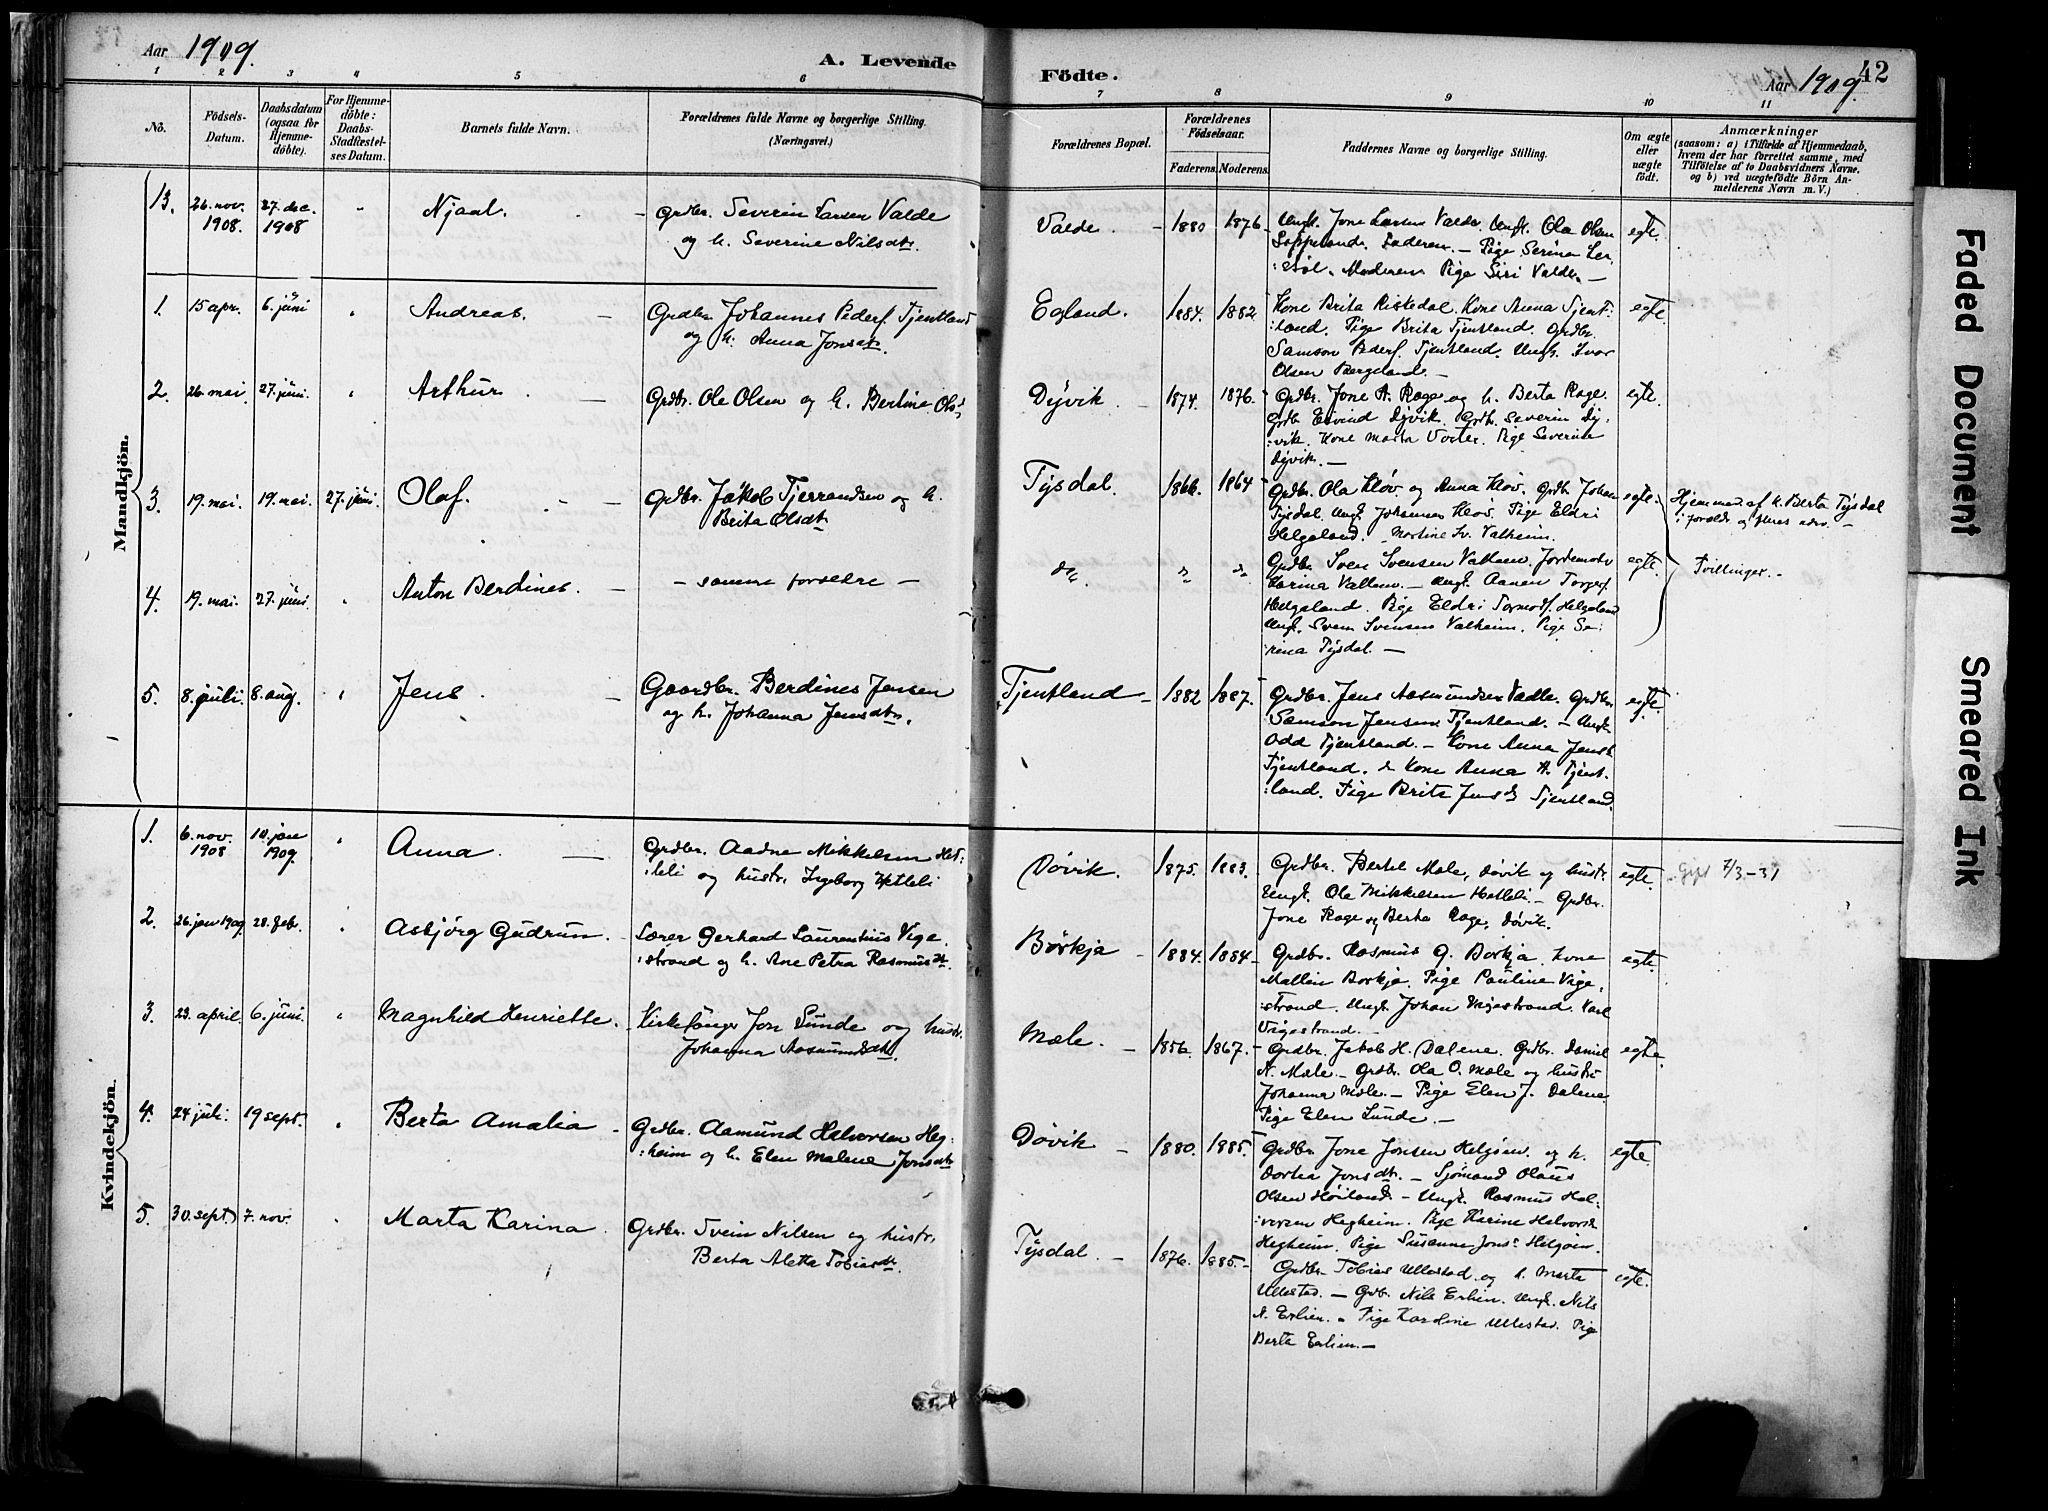 Aar 1909.
A. Levende Födte.
Aar 1909.
42
1 2 3 4 5 6 7 8 9 10 11
No.
Födsels-Datum.
Daabsdatum (ogsaa for Hjemme-döbte).
For Hjemme-döbte: Daabs-Stadfæstel-ses Datum.
Barnets fulde Navn.
Forældrenes fulde Navne og borgerlige Stilling. (Næringsvei.)
Forældrenes Bopæl.
Forældrenes Födselsaar.
Faderens. Moderens.
Faddernes Navne og borgerlige Stilling.
Om ægte eller uægte födt.
Anmærkninger
(saasom: a) i Tilfælde af Hjemmedaab,
hvem der har forrettet samme, med
Tilföielse af to Daabsvidners Navne,
og b) ved uægtefödte Börn An-
melderens Navn m. V.)
Mandkjön.
13. 26. nov. 1908. 27. dec. 1908 " Njaal. Grdbr. Severin Larsen Valde
og h. Severine Nilsdtr.
Valde. 1880 1876 Ungk. Jone Larsen Valde. Ungk. Ola Olsen
Faderen. — Pige Serina
Moderen Pige Siri Valde. —
egte.
1. 15 apr. 6. juni " Andreas. Grdbr. Johannes Peders. Tjentland
og h. Anna Jonsdtr.
Egland. 1884. 1882 Kone Brita Riskedal. Kone Anna Tjent-
:land. Pige Brita Tjentland. Grdbr.
Samson Peders. Tjentland. Ungk. Ivar
Olsen Bergeland. —
egte.
2. 26. mai. 27. juni. " Arthur. Grdbr. Ole Olsen og h. Bertine Olsd.
Dyvik. 1874. 1876. Grdbr. Jone A. Rage og h. Berta Rage.
Grdb. Eivind Dyvik. Grdb. Severin Dy-
:vik. Kone Marta Pige Severine
Dyvik. —
egte.
3. 19. mai. 19. mai. 27. juni. Olaf. Grdbr. Jakob Tjerrandsen og h.
Brita Olsdtr.
Tysdal. 1866. 1864 Grdbr. Ola Kløv og Anna Kløv. Grdb. Johan
Tysdal. Ungk. Johannes Kløv. Pige Eldri
Helgaland. Martine Valheim.
egte.
Hjemmed. af h. Berta Tysdal
i foræld. og fleres nærv. —
4. 19. mai. 27. juni. " Anton Berdines. — samme forældre —
Grdbr. Sven Svensen Valheim. Jordemoder
Karina Ungk. Aanen Torgers.
Helgaland. Pige Eldri Helgaland
Ungk. Sven Svensen Valheim. Pige Se-
rina Tysdal. —
egte.
Tvillinger. –
5. 8. juli. 8. aug. " Jens. Gaardbr. Berdines Jensen
og h. Johanna Jensdtr.
Tjentland 1882 1887. Grdbr. Jens Aasmundsen Vadle. Grdbr.
Samson Jensen Tjentland. – Ungk.
Odd Tjentland. – Kone Anna Jensd.
Tjentland. Kone Anna A. Tjent-
:land. Pige Brita Jensd. Tjentland.
egte.
Kvindekjön.
1. 6. nov. 1908 10. jan 1909. " Anna. Grdbr. Aadne Mikkelsen Het-
:leli og hustr. Ingeborg Hetleli
Døvik. 1875. 1883. Grdbr. Bertel Mæle, Døvik og hustr.
Ungk. Ole Mikkelsen Hetleli – Grdbr.
Jone Rage og Berta Rage, Døvik.
egte.
Gift 7/3–31
2. 26. jan 1909 28. febr. " Asbjörg Gudrun. Lærer Gerhard Laurentius Vige-
:strand og h. Ane Petra Rasmusdtr.
Börkja 1884. 1884 Grdbr. Rasmus G. Borkja, kone
Mallin Borkja. Pige Pauline Vige-
:strand. Ungk. Johan Vigestrand. Karl
Vigestrand. –
egte.
3. 23. april. 6. juni. " Magnhild Henriette. Kirkesanger Jon Sunde og hustr.
Johanna Aasmundsdtr.
Mæle. 1856. 1867. Grdbr. Jakob H. Dalene. Grdbr. Daniel
N. Mæle – Grdbr. Ola O. Mæle og hustru
Johanna Mæle. – Pige Elen J. Dalene.
Pige Elen Sunde. –
egte.
4. 24 juli. 19 sept. " Berta Amalia Grdbr. Aamund Halvorsen Heg-
:heim og h. Elen Malene Jonsdtr.
Døvik 1880. 1885. Grdbr. Jone Jonsen Helgøen og h.
Dortea Jonsdtr. – Sjømand Olaus
Olsen Høiland. – Ungk. Rasmus Hal-
:versen Hegheim. Pige Karine Halvorsd.
Hegheim. Pige Susanne Jons. Helgøen.
egte
5. 30. sept. 7. nov. " Marta Karina. Grdbr. Svein Nilsen og hustr.
Berta Aletta Tobiasdtr.
Tysdal. 1876. 1885. Grdbr. Tobias Ullestad og h. Marta
Ullestad. – Grdb. Nils Erlien. Ungk. Nils
N. Erlien. Pige Karoline Ullestad. Pige
Berta Erlien. –
egte.
Faded Document
Smeared Ink